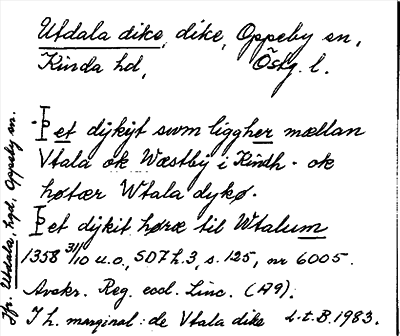 Utdala dike, dike, Oppeby sn,
Kinda hd, Östg. l.
Þet dijkijt swm liggher mællan
Vtala ok Wæstby i Kindh - ok
høtær Wtala dykø.
Þet dijkit hørœ til Wtalum
1358 31/10 u.o., SD7 h.3, s. 125, nr 6005.
Avskr. Reg. eccl. Linc. (A9).
I h. marginal: de Vtala dike L-t.B. 1983.
Jfr. Utdala, hgd, Oppeby sn.